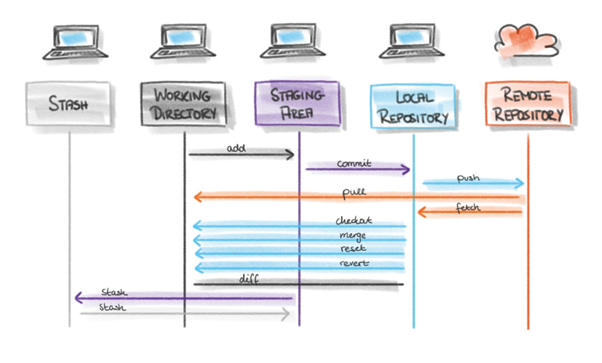 STASH
WORKING
DIRECTORY
STAGING
AREA
LOCAL
REPOSITORY
REMOTE
REPOSITORY
add
commit
push
pull
fetch
checkout
merge
reset
revert
diff
stash
stash